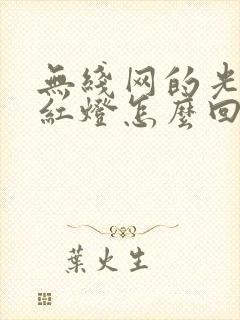 無綫网的光
紅燈怎麼回
葉火生